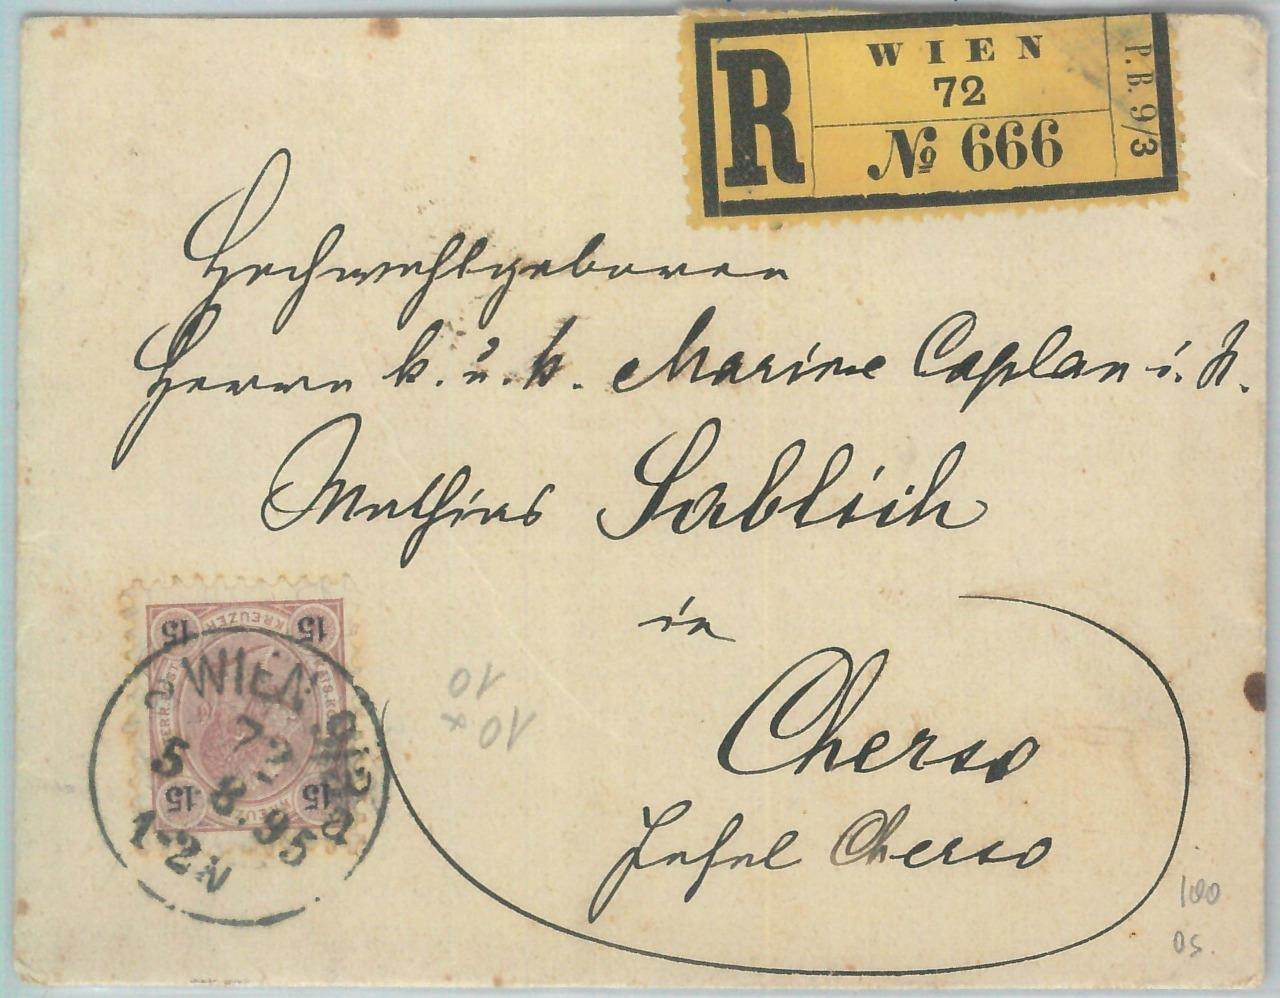 R
WIEN
72
№ 666
P. B. 9/3
Hochwohlgeboren
Herrn k. u. k. Marine Caplan i. R.
Mathias Sablich
in
Cherso
Insel Cherso
15 KREUZER 15
15 15
WIEN
72
5 8. 95
1-2N
10
10 x
100